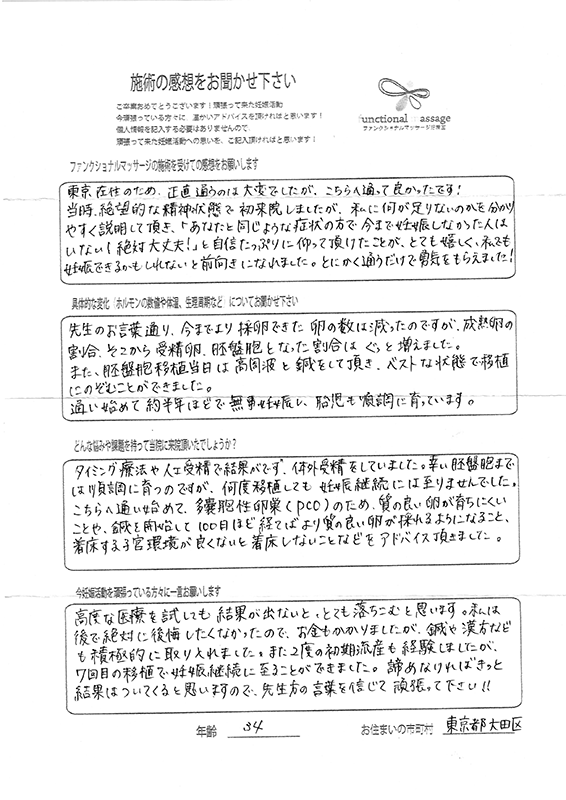 施術の感想をお聞かせ下さい
ご卒業おめでとうございます！頑張って来た妊娠活動
今頑張っている方々に、温かいアドバイスを頂ければと思います！
個人情報を記入する必要はありませんので、
頑張って来た妊娠活動への思いを、ご記入頂ければと思います！
functional massage
ファンクショナルマッサージ
ファンクショナルマッサージの施術を受けての感想をお願いします
東京在住のため、正直通うのは大変でしたが、こちらへ通って良かったです！
当時、絶望的な精神状態で初来院しましたが、私に何が足りないのかを分かり
やすく説明して頂き、「あなたと同じような症状の方で今まで妊娠しなかった人は
いない！絶対大丈夫！」と自信たっぷりに仰って頂けたことが、とても嬉しく、私でも
妊娠できるかもしれないと前向きになれました。とにかく通うだけで勇気をもらえました！
具体的な変化「ホルモンの数値や体温、生理周期など」についてお聞かせ下さい
先生のお言葉通り、今までより採卵できた卵の数は減ったのですが、成熟卵の
割合、そこから受精卵、胚盤胞となった割合はぐっと増えました。
また、胚盤胞移植当日は高周波と鍼をして頂き、ベストな状態で移植
にのぞむことができました。
通い始めて約半年ほどで無事妊娠し、胎児も順調に育っています。
どんな悩みや課題を持って当院に来院頂いたでしょうか？
タイミング療法や人工受精で結果がでず、体外受精をしていました。幸い胚盤胞まで
は順調に育つのですが、何度移植しても妊娠継続には至りませんでした。
こちらへ通い始めて、多嚢胞性卵巣(PCO)のため、質の良い卵が育ちにくい
ことや、鍼を開始して100日ほど経てばより質の良い卵が採れるようになること、
着床する子宮環境が良くないと着床しないことなどをアドバイス頂きました。
今妊娠活動を頑張っている方々に一言お願いします
高度な医療を試しても結果が出ないと、とても落ちこむと思います。私は
後で絶対に後悔したくなかったので、お金もかかりましたが、鍼や漢方など
も積極的に取り入れました。また2度の初期流産も経験しましたが、
7回目の移植で妊娠継続に至ることができました。諦めなければきっと
結果はついてくると思いますので、先生方の言葉を信じて頑張って下さい!!
年齢 34 お住まいの市町村 東京都大田区